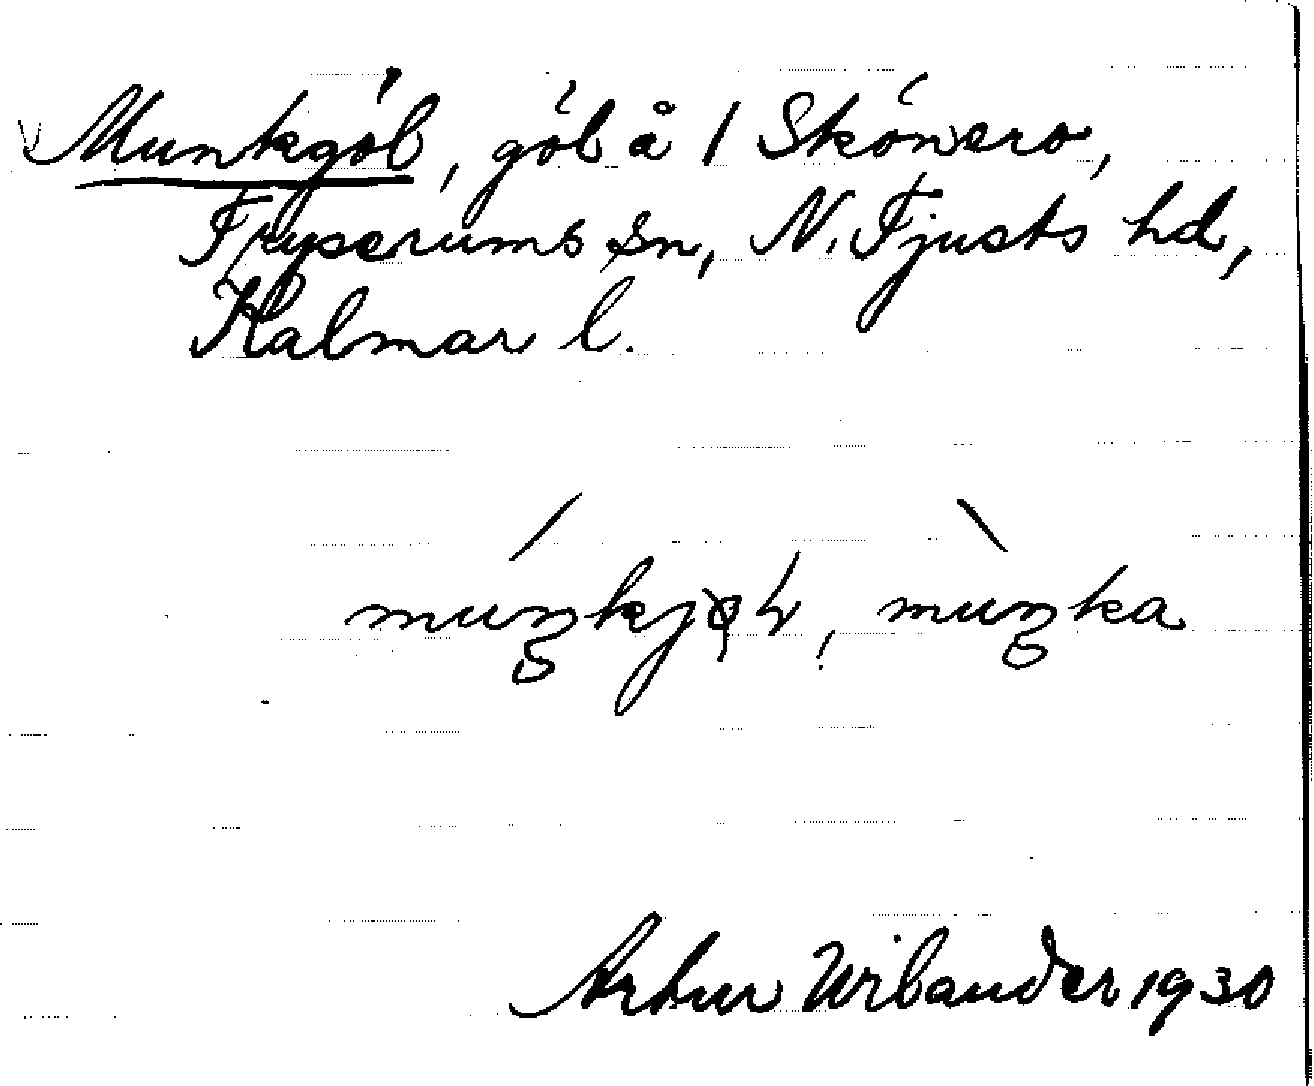 Munkgöl, göl å 1 Skönero,
Fryserums sn, N. Tjusts hd,
Kalmar l.
muŋka
Arthur Wilander 1930